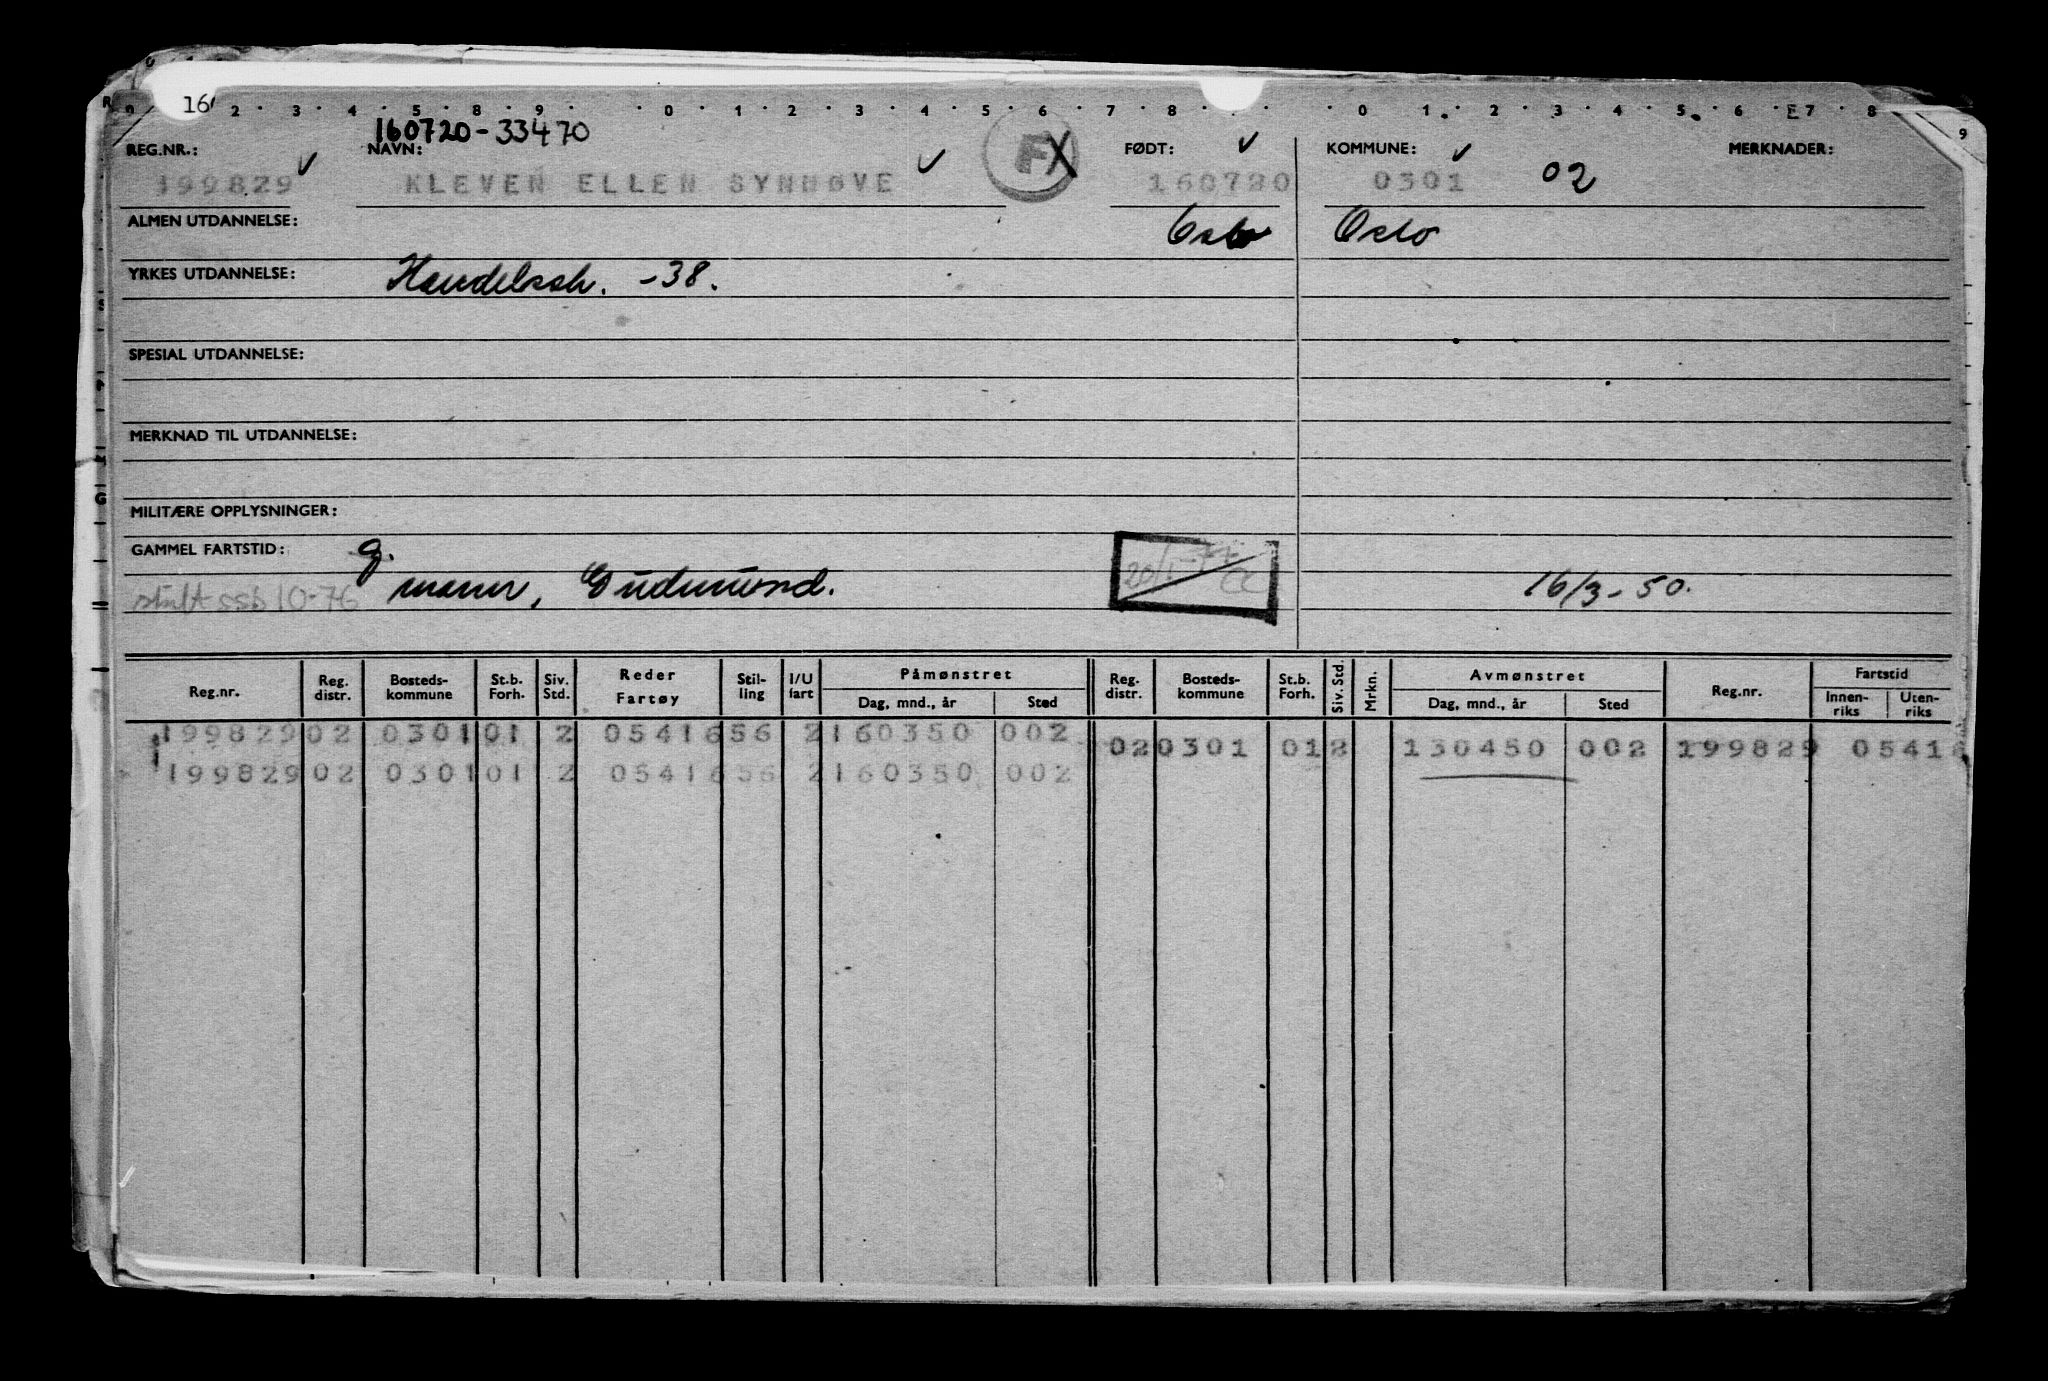 16
0 1 2 3 4 5 6 7 8 9 0 1 2 3 4 5 6 7 8 0 1 2 3 4 5 6 7 8 9
160720-33470
REG.NR.: NAVN: FX FØDT: KOMMUNE: MERKNADER:
199829 KLEVEN ELLEN SYNNØVE 160720 0301 02
ALMEN UTDANNELSE: Oslo Oslo
YRKES UTDANNELSE: Handelssk. -38.
SPESIAL UTDANNELSE:
MERKNAD TIL UTDANNELSE:
MILITÆRE OPPLYSNINGER:
GAMMEL FARTSTID: g.
ssb 10-76 mann, Gudmund. 20/1-77 16/3-50.
Reg.nr. Reg. distr. Bosteds-kommune St.b. Forh. Siv. Std. Reder Fartøy Stil-ling I/U fart Påmønstret Dag, mnd., år Sted Reg. distr. Bosteds-kommune St.b. Forh. Siv. Std. Mrkn. Avmønstret Dag, mnd., år Sted Reg.nr. Fartstid Innen-riks Uten-riks
199829 02 0301 01 2 05416 56 2 160350 002 02 0301 01 2 130450 002 199829 05416
199829 02 0301 01 2 05416 56 2 160350 002